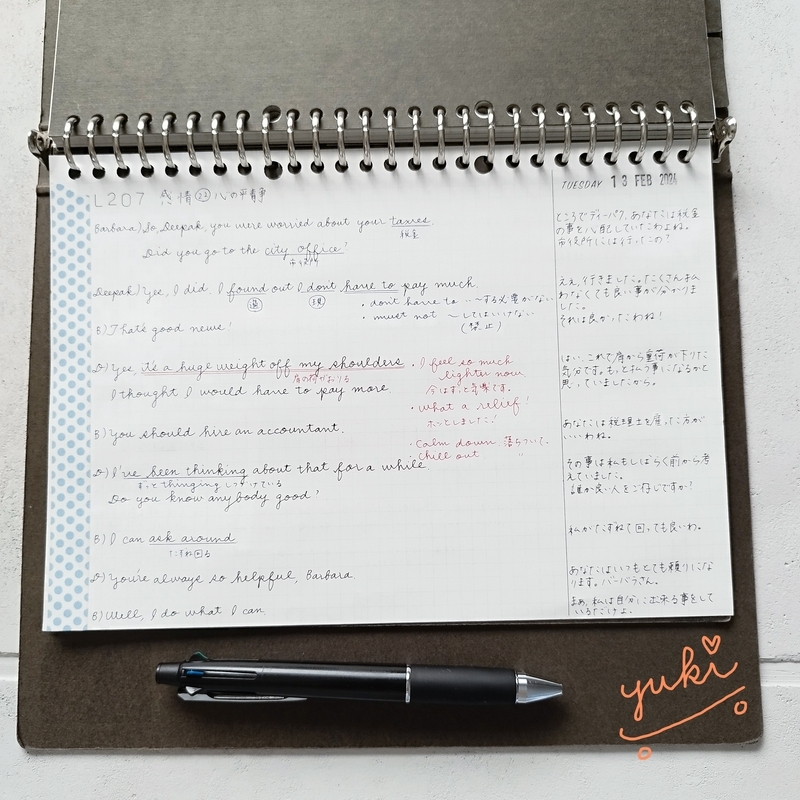 L207 感情㉒心の平静
TUESDAY 13 FEB 2024
Barbara) So, Deepak, you were worried about your taxres.
税金
Did you go to the city office?
市役所
Deepak) Yes, I did. I found out I dont have to pay much.
過 現
・dont have to … ~する必要がない
・must not ~してはいけない
(禁止)
B) Thats good news!
D) Yes, it's a huge weight off my shoulders
肩の荷がおりる
I thought I would have to pay more
・I feel so much
lighter now
今はずっと気楽です。
・what a relief!
ホッとしました!
・Calm down 落ちついて、
・Chill out 〃
B) You should hire an accountant.
D) I've been thinking about that for a while
ずっと thinging しつづけている
Do you know anybody good?
B) I can ask around
たずね回る
D) You're always so helpful, Barbara.
B) Well, I do what I can.
ところでディーパク、あなたは税金
の事を心配していたわよね。
市役所には行ったの?
ええ、行きました。たくさん払
わなくても良い事が分かりま
した。
それは良かったわね!
はい、これで肩から重荷が下りた
気分です。もっと払う事になるかと
思っていましたから。
あなたは税理士を雇った方が
いいわね。
その事は私もしばらく前から考
えていました。
誰か良い人をご存じですか?
私がたずねて回っても良いわ。
あなたはいつもとても頼りにな
ります。バーバラさん。
まあ、私は自分に出来る事をして
いるだけよ。
yuki